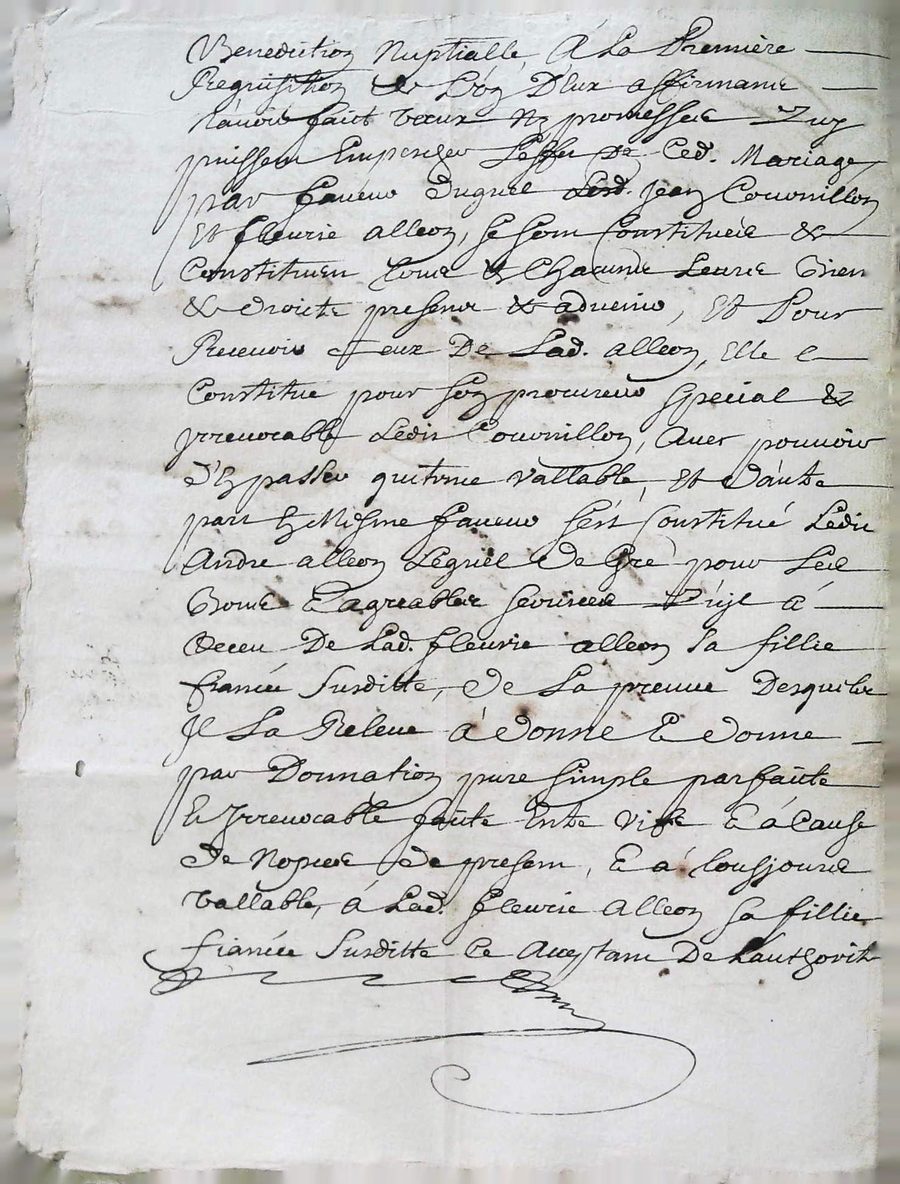 Benediction Nuptialle, A La Premiere
Requisition de L'un D'Eux affirmant
n'avoir fait vœux Ny promesses Quy
puissent Empescher L'effet De Ced. Mariage
par faveur duquel Lesd. Jean Couvrillon
Et fleurie alleon, se sont Constitués &
Constituent tous & Chacuns Leurs Biens
& droits presens & advenir, Et Pour
Recevoir Ceux De Lad. alleon, Elle
Constitue pour son procureur special &
yrrevocable Ledit Couvrillon, Avec pouvoir
d'En passer quittance vallable, Et D'autre
part En Mesme faveur s'est Constitué Ledit
Andre alleon Lequel De Gré pour Les
Bons E agreables services Qu'il à
Receu De Lad. fleurie alleon sa fillie
fiancée susditte, De La preuve Desquels
Il La Releve à Donné E Donne
par Donnation pure simple parfaite
E Yrrevocable faite Entre vifs E à Cause
De Nopces De present, E à tousjours
vallable, à Lad. fleurie alleon sa fillie
fiancée susditte Ce Acceptant De L'authorité